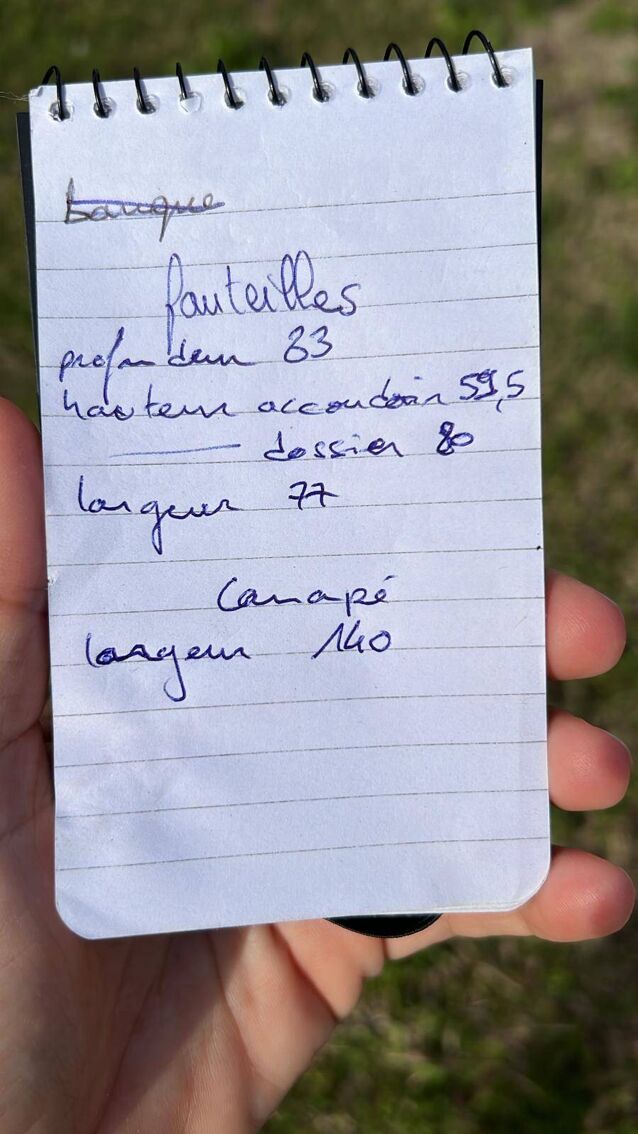 banque
fauteilles
profondeur 83
hauteur accoudoir 59,5
—— dossier 80
largeur 77
Canapé
largeur 140